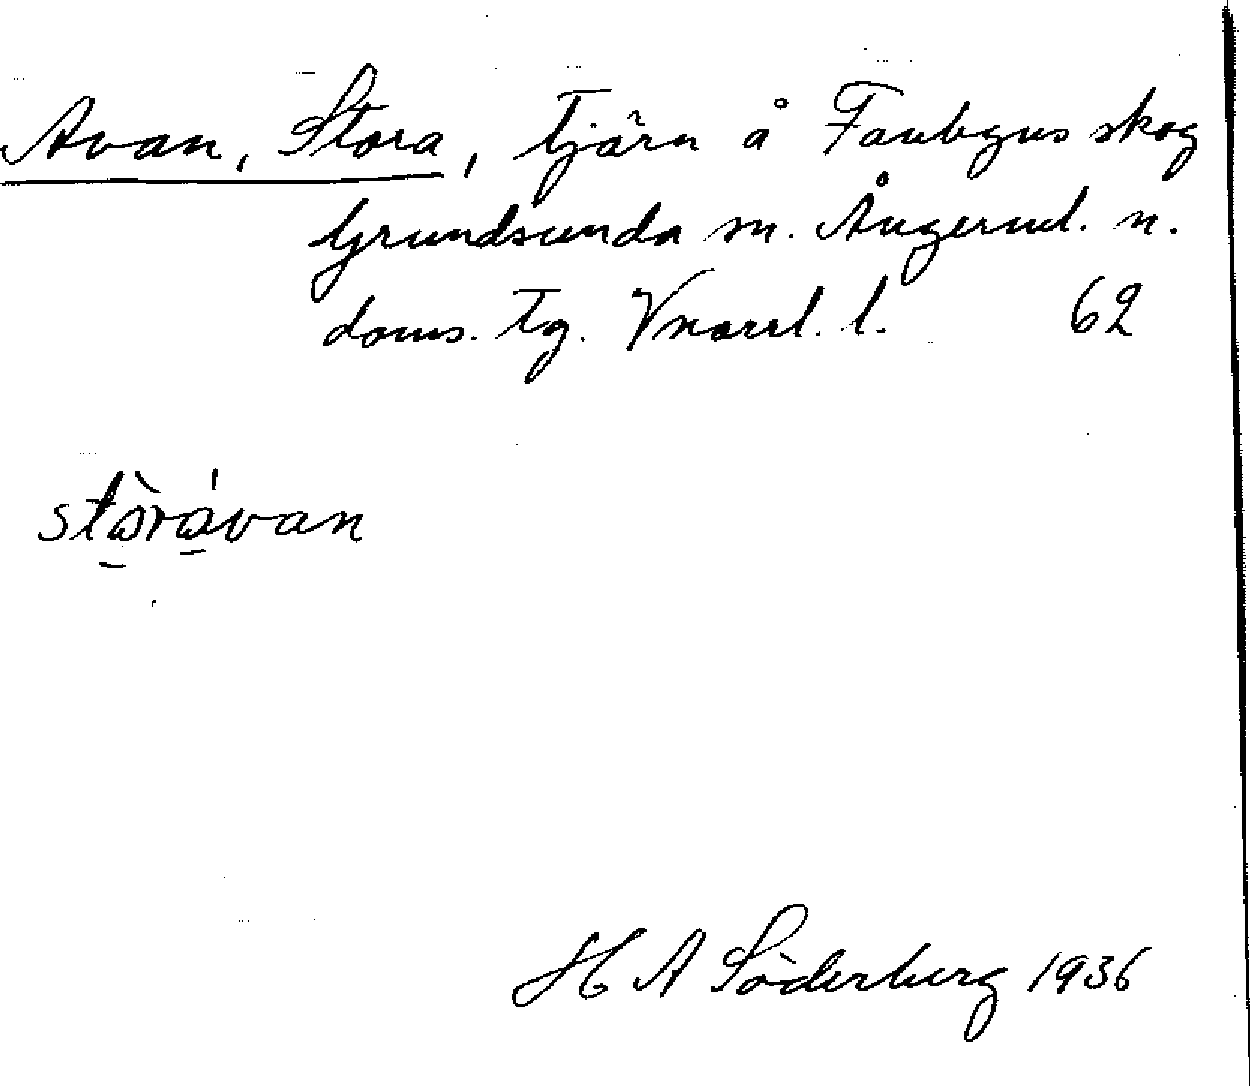 Avan, Stora, tjärn å Faubyns skog
Grundsunda sn. Ångerml. n.
doms. tg. Vnorrl. l. 62
stòràvan
H A Söderberg 1936